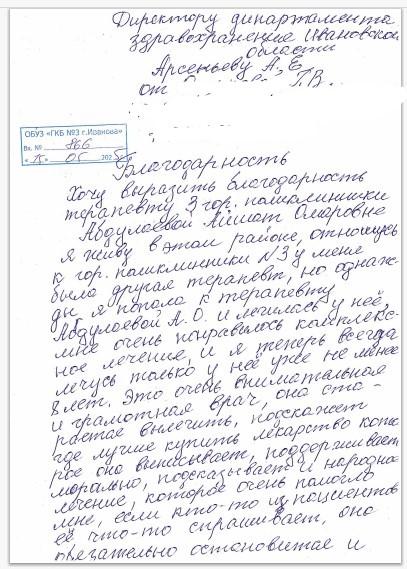 Директору департамента
здравохранение Ивановской
области
Арсеньеву А, Е,
от Г.В.
ОБУЗ «ГКБ №3 г.Иваново»
Вх. № 866
«15» 05 2025
Благодарность
Хочу выразить благодарность
терапевту 3 гор. поликлиники
Абдулаевой Айшат Омаровне
я живу в этом районе, отношусь
к гор. поликлинники N3 у меня
была другая терапевт, но однаж-
ды я попала к терапевту
Абдулаевой А.О. и лечилась у неё,
мне очень понравилось комплекс-
ное лечение, и я теперь всегда
лечусь только у неё уже не менее
8 лет. Это очень внимательная
и грамотная врач, она ста-
рается вылечить, подскажет
где лучше купить лекарство кото
рое она выписывает, поддерживает
морально, подсказывает и народно
лечение, которое очень помогло
мне, если кто-то из пациентов
её что-то спрашивает, она
обязательно остановится и